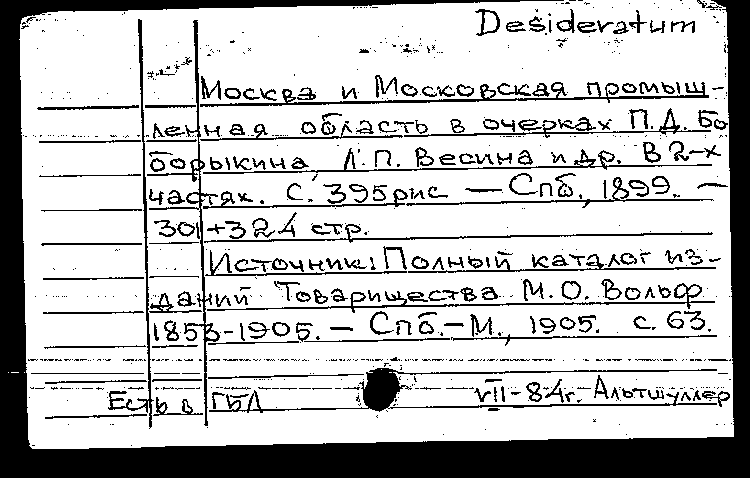 Desideratum
Москва и Московская промыш-
ленная область в очерках П.Д. Бо
борыкина, Л.П. Весина и др. В 2-х
частях. С. 395 рис — Спб., 1899. —
301+324 стр.
Источник: Полный каталог из-
даний Товарищества М.О. Вольф
1853-1905. — Спб.-М., 1905. с. 63.
Есть в ГБЛ
VII-84г. Альтшуллер